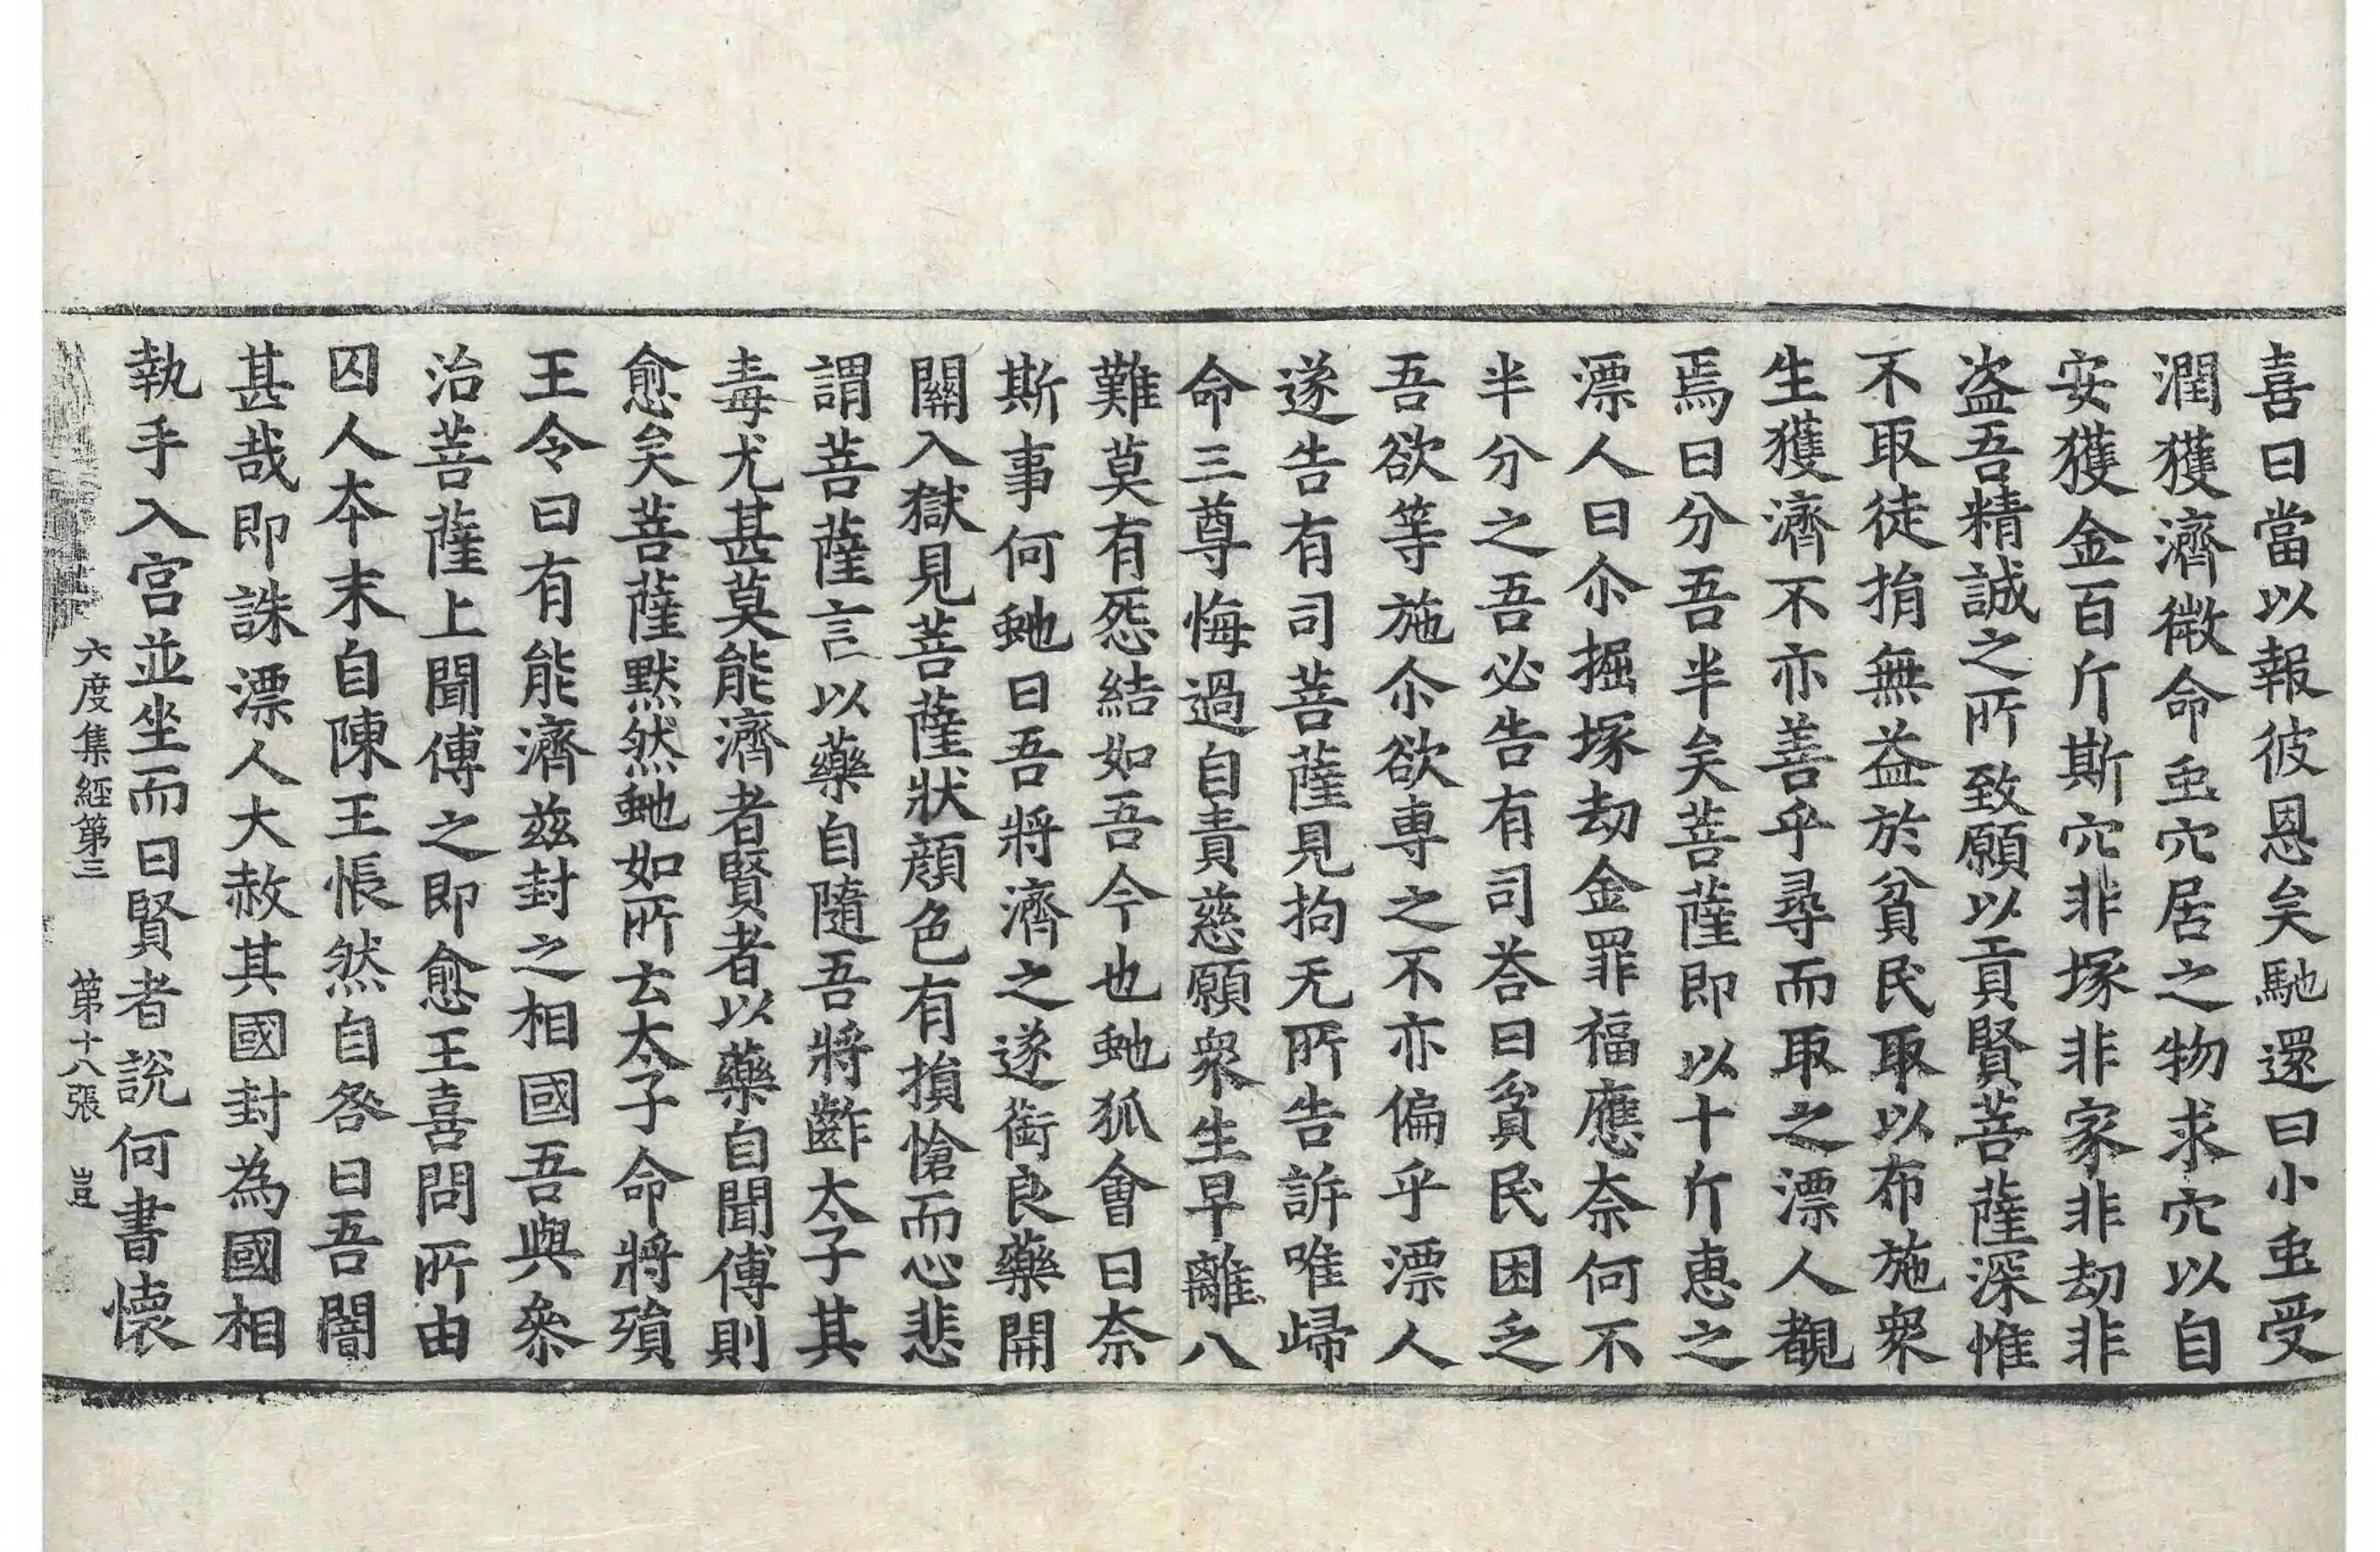 喜曰當以報彼恩矣馳還曰小䖝受
潤獲濟微命䖝穴居之物求穴以自
安獲金百斤斯穴非塚非家非劫非
盗吾精誠之所致願以貢賢菩薩深惟
不取徒捐無益於貧民取以布施衆
生獲濟不亦善乎尋而取之漂人覩
焉曰分吾半矣菩薩即以十斤惠之
漂人曰尒掘塚劫金罪福應奈何不
半分之吾必告有司荅曰貧民困乏
吾欲等施尒欲專之不亦偏乎漂人
遂告有司菩薩見拘无所告訴唯歸
命三尊悔過自責慈願衆生早離八
難莫有怨結如吾今也虵狐會曰奈
斯事何虵曰吾將濟之遂銜良藥開
關入獄見菩薩狀顔色有損愴而心悲
謂菩薩言以藥自隨吾將齚太子其
毒尤甚莫能濟者賢者以藥自聞傳則
愈矣菩薩默然虵如所云太子命將殞
王令曰有能濟兹封之相國吾與叅
治菩薩上聞傳之即愈王喜問所由
囚人夲末自陳王悵然自咎曰吾闇
甚哉即誅漂人大赦其國封為國相
執手入宫並坐而曰賢者說何書懷
六度集經第三 第十八張 豈